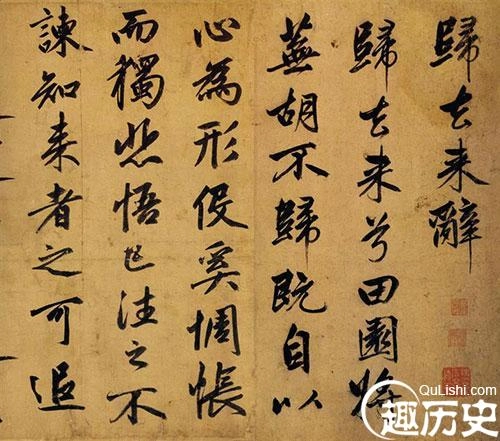 歸去来辭
歸去来兮田園將
蕪胡不歸既自以
心為形役奚惆悵
而獨悲悟已往之不
諫知来者之可追
QuLishi.com
趣历史